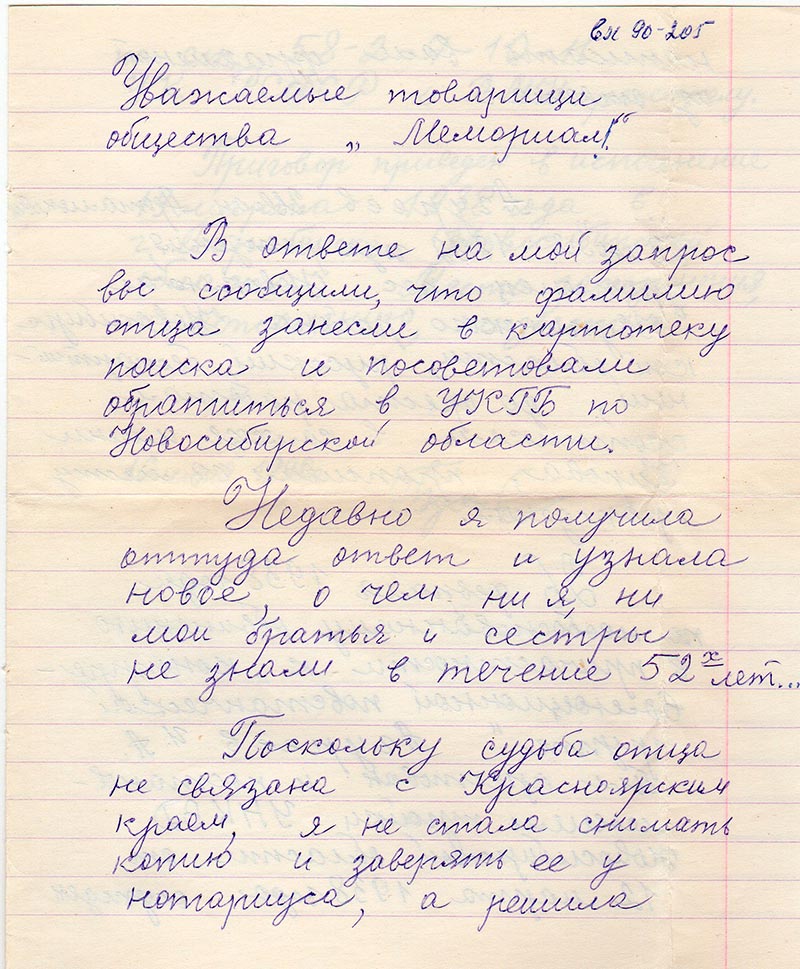 вх 90-205
Уважаемые товарищи
общества „Мемориал“!
В ответе на мой запрос
вы сообщили, что фамилию
отца занесли в картотеку
поиска и посоветовали
обратиться в УКГБ по
Новосибирской области.
Недавно я получила
оттуда ответ и узнала
новое, о чем ни я, ни
мои братья и сестры
не знали в течение 52х лет...
Поскольку судьба отца
не связана с Красноярским
краем, я не стала снимать
копию и заверять ее у
нотариуса, а решила